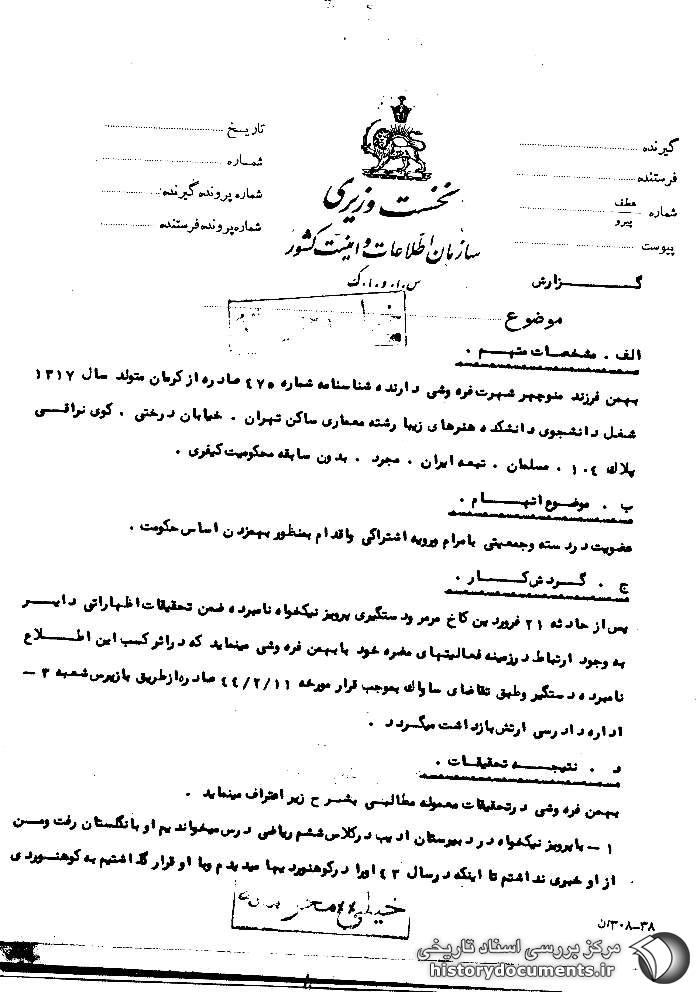 گیرنده
فرستنده
شماره عطف پیرو
پیوست
تاریخ
شماره
شماره پرونده گیرنده:
شماره پرونده فرستنده
نخست وزیری
سازمان اطلاعات و امنیت کشور
س.ا.و.ا.ک
گزارش
موضوع
الف . مشخصات متهم .
بهمن فرزند منوچهر شهرت فره وشی دارنده شناسنامه شماره ۴۷۵ صادره از کرمان متولد سال ۱۳۱۷
شغل دانشجوی دانشکده هنرهای زیبا رشته معماری ساکن تهران . خیابان درختی . کوی نراقی
پلاک ۱۰۴ . مسلمان . تبعه ایران . مجرد . بدون سابقه محکومیت کیفری .
ب . موضوع اتهام .
عضویت در دسته و جمعیتی با مرام و رویه اشتراکی و اقدام بمنظور بهمزدن اساس حکومت .
ج . گردش کار .
پس از حادثه ۲۱ فروردین کاخ مرمر و دستگیری پرویز نیکخواه نامبرده ضمن تحقیقات اظهاراتی دایر
به وجود ارتباط در زمینه فعالیتهای مضره خود با بهمن فره وشی مینماید که در اثر کسب این اطلاع
نامبرده دستگیر و طبق تقاضای ساواک بموجب قرار مورخه ۴۴/۲/۱۱ صادره از طریق بازپرس شعبه ۳ –
اداره دادرسی ارتش بازداشت میگردد .
د . نتیجه تحقیقات .
بهمن فره وشی در تحقیقات معموله مطالبی بشرح زیر اعتراف مینماید .
۱ – با پرویز نیکخواه در دبیرستان ادیب در کلاس ششم ریاضی درس میخواندیم او بانگلستان رفت و من
از او خبری نداشتم تا اینکه در سال ۴۳ او را در کوهنوردیها میدیدم و با او قرار گذاشتیم به کوهنوردی
خیلی محرمانه
۳۸–۳۰۸/ن
مرکز بررسی اسناد تاریخی
historydocuments.ir